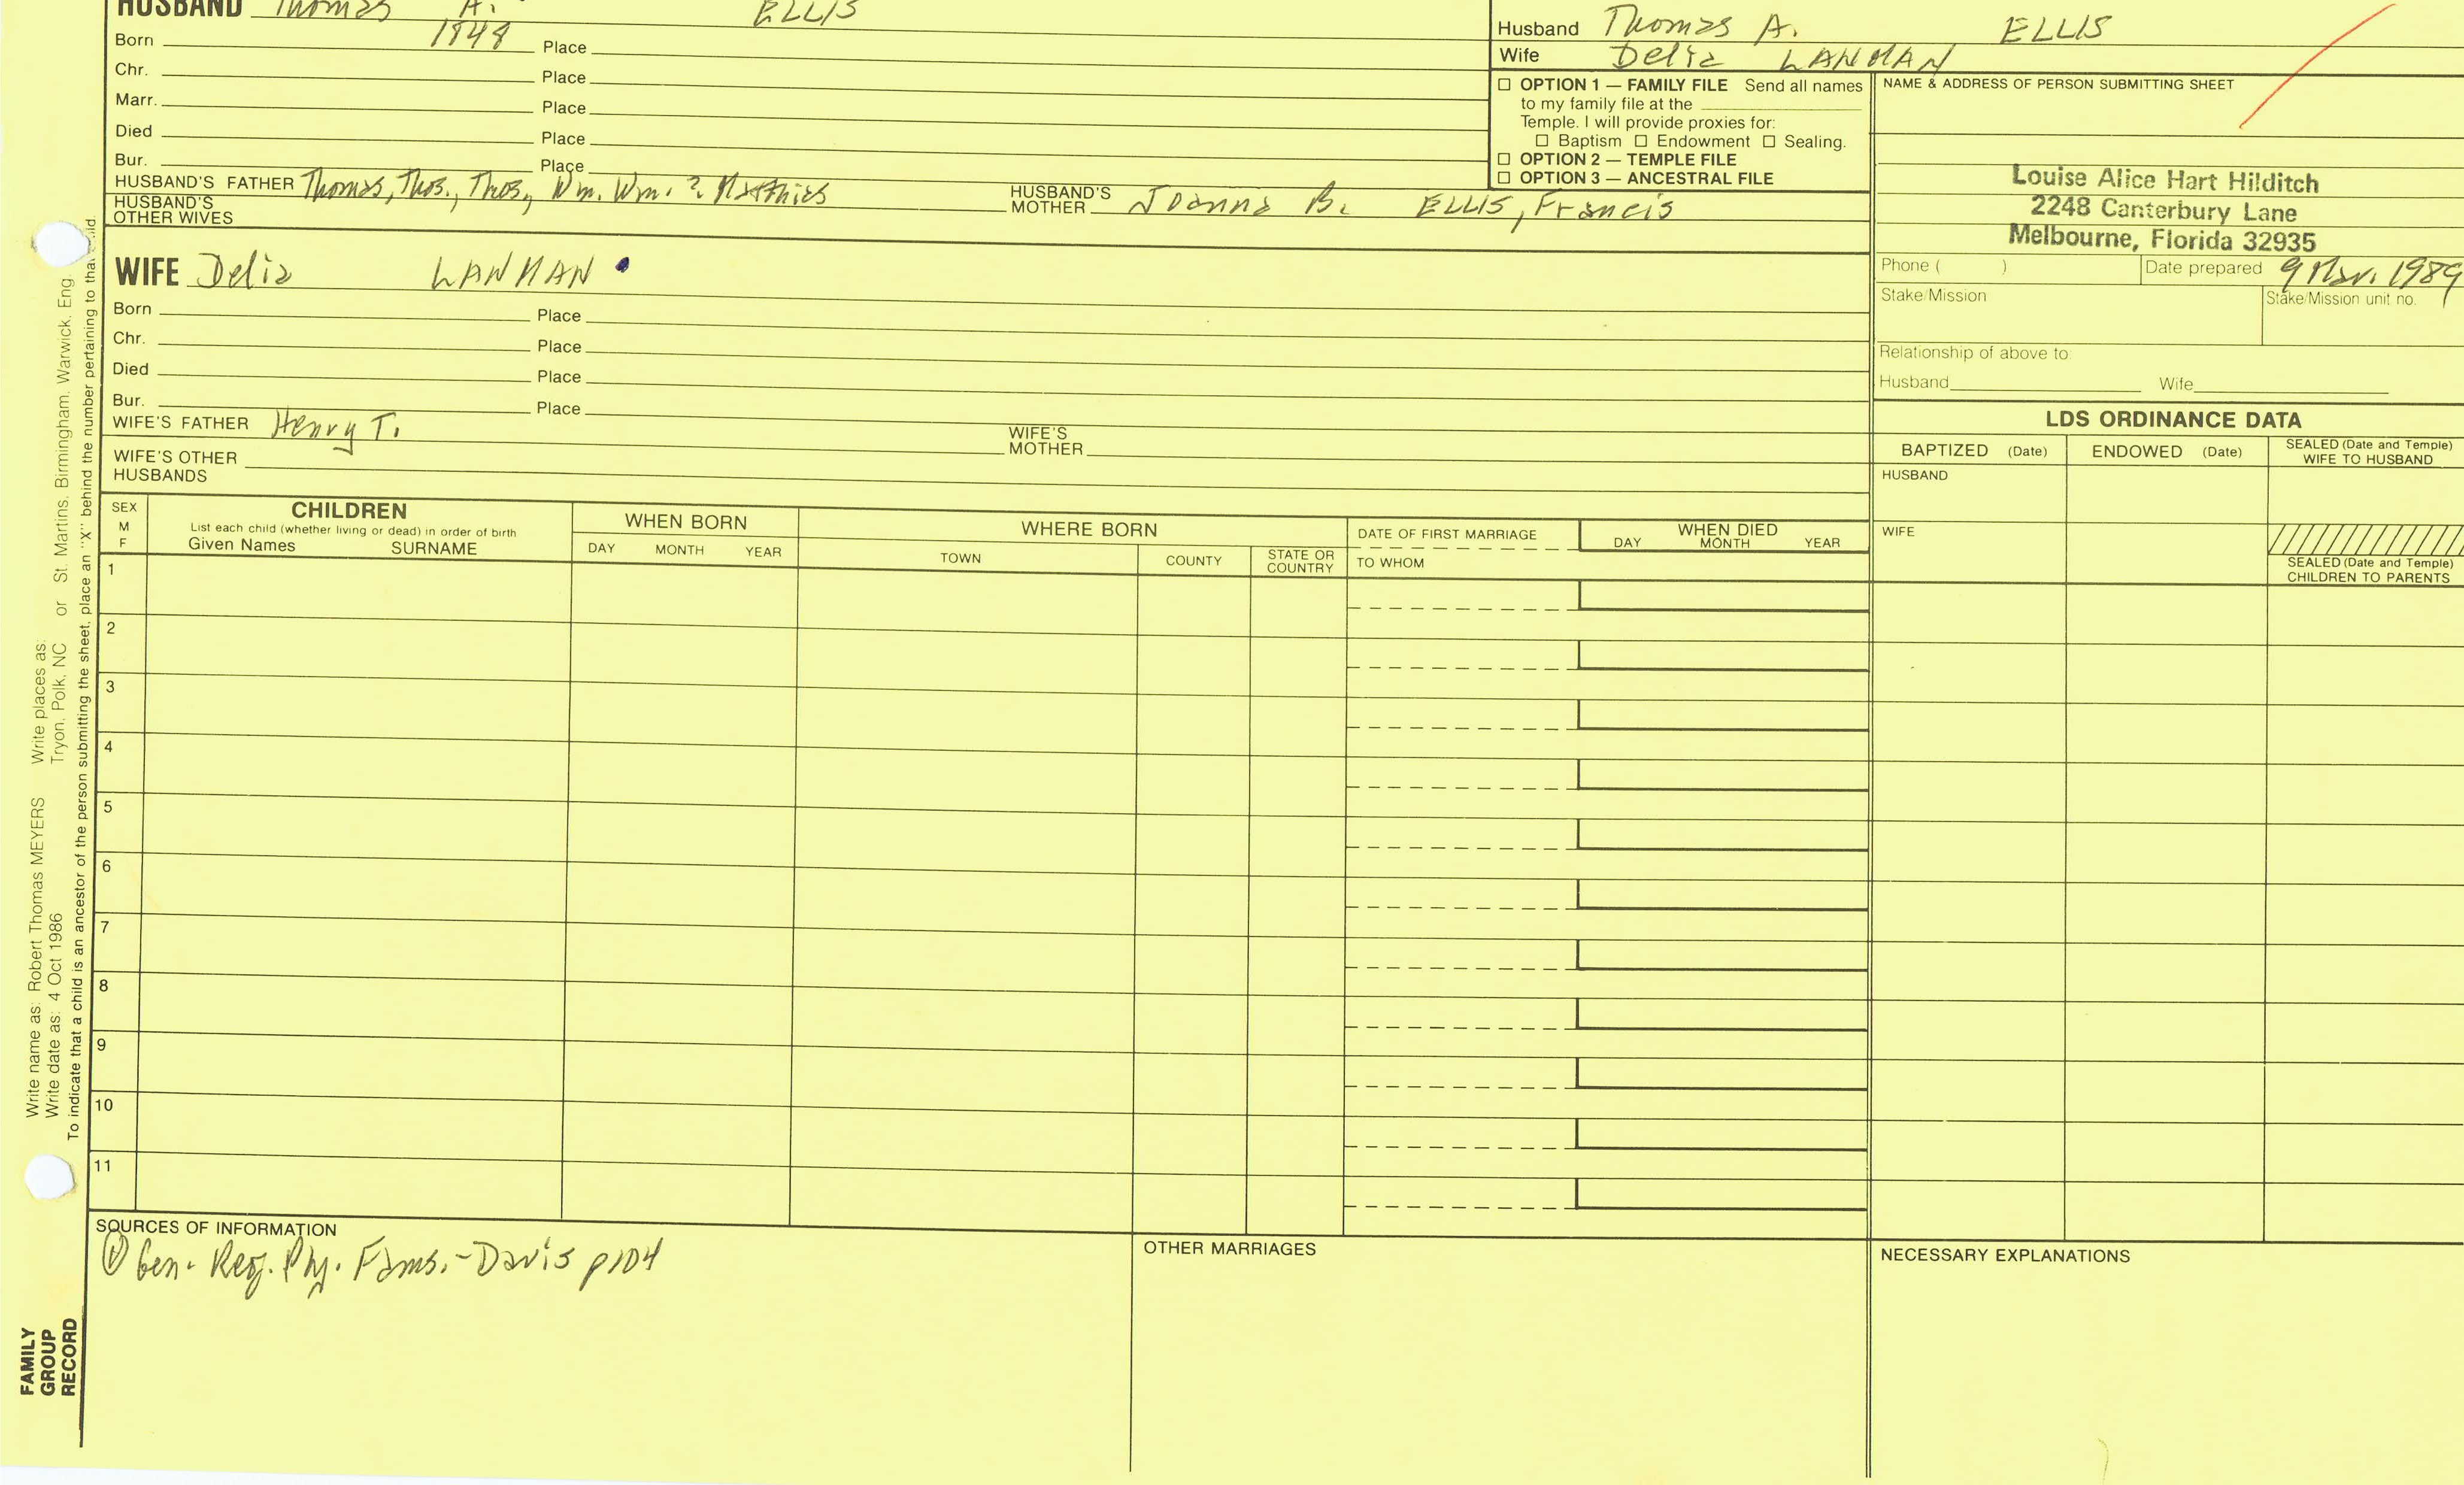 HUSBAND Thomas A. ELLIS
Born 1848 Place
Chr. Place
Marr. Place
Died Place
Bur. Place
HUSBAND'S FATHER Thomas, Thos., Thos., Wm. Wm. ? Matthias
HUSBAND'S MOTHER Joanna B. ELLIS, Francis
HUSBAND'S OTHER WIVES
Husband Thomas A. ELLIS
Wife Delia LANMAN
☐ OPTION 1 — FAMILY FILE Send all names
to my family file at the
Temple. I will provide proxies for:
☐ Baptism ☐ Endowment ☐ Sealing.
☐ OPTION 2 — TEMPLE FILE
☐ OPTION 3 — ANCESTRAL FILE
NAME & ADDRESS OF PERSON SUBMITTING SHEET
Louise Alice Hart Hilditch
2248 Canterbury Lane
Melbourne, Florida 32935
Phone ( ) Date prepared 9 Mar. 1989
Stake/Mission Stake/Mission unit no.
Relationship of above to
Husband Wife
WIFE Delia LANMAN
Born Place
Chr. Place
Died Place
Bur. Place
WIFE'S FATHER Henry T.
WIFE'S MOTHER
WIFE'S OTHER
HUSBANDS
LDS ORDINANCE DATA
BAPTIZED (Date) ENDOWED (Date) SEALED (Date and Temple)
WIFE TO HUSBAND
HUSBAND
WIFE
SEALED (Date and Temple)
CHILDREN TO PARENTS
SEX
M
F
CHILDREN
List each child (whether living or dead) in order of birth
Given Names SURNAME
WHEN BORN
DAY MONTH YEAR
WHERE BORN
TOWN COUNTY STATE OR COUNTRY
DATE OF FIRST MARRIAGE
TO WHOM
WHEN DIED
DAY MONTH YEAR
1
2
3
4
5
6
7
8
9
10
11
SOURCES OF INFORMATION
Gen. Reg. Ply. Fams. - Davis p104
OTHER MARRIAGES
NECESSARY EXPLANATIONS
Write name as: Robert Thomas MEYERS Write places as:
Write date as: 4 Oct 1986 Tryon, Polk, NC or St. Martins, Birmingham, Warwick, Eng.
To indicate that a child is an ancestor of the person submitting the sheet, place an "X" behind the number pertaining to that child.
FAMILY
GROUP
RECORD